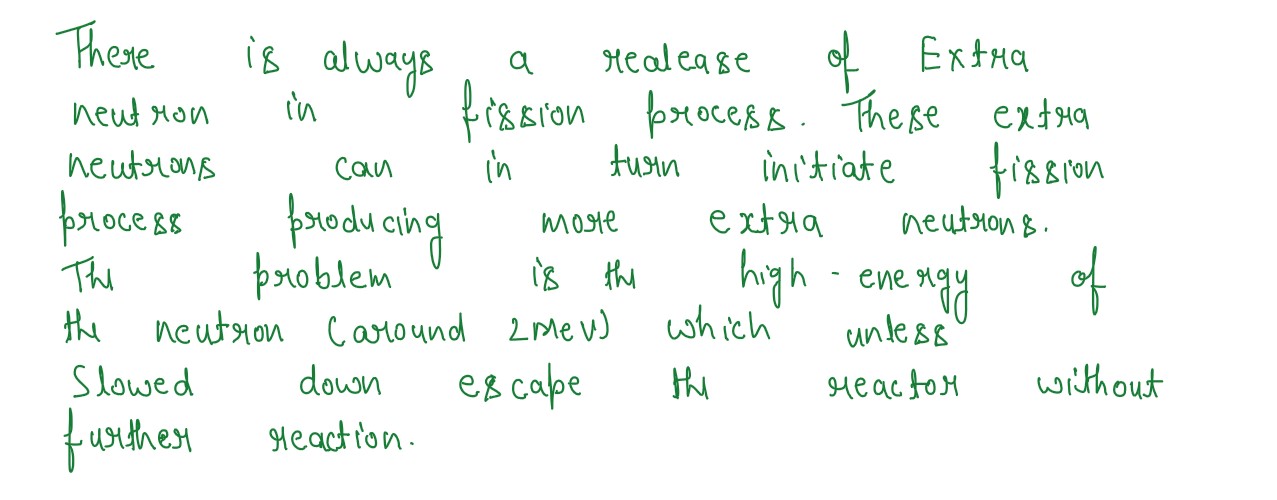 There is always a realease of Extra
neutron in fission process. These extra
neutrons can in turn initiate fission
process producing more extra neutrons.
The problem is the high - energy of
the neutron (around 2MeV) which unless
Slowed down escape the reactor without
further reaction.